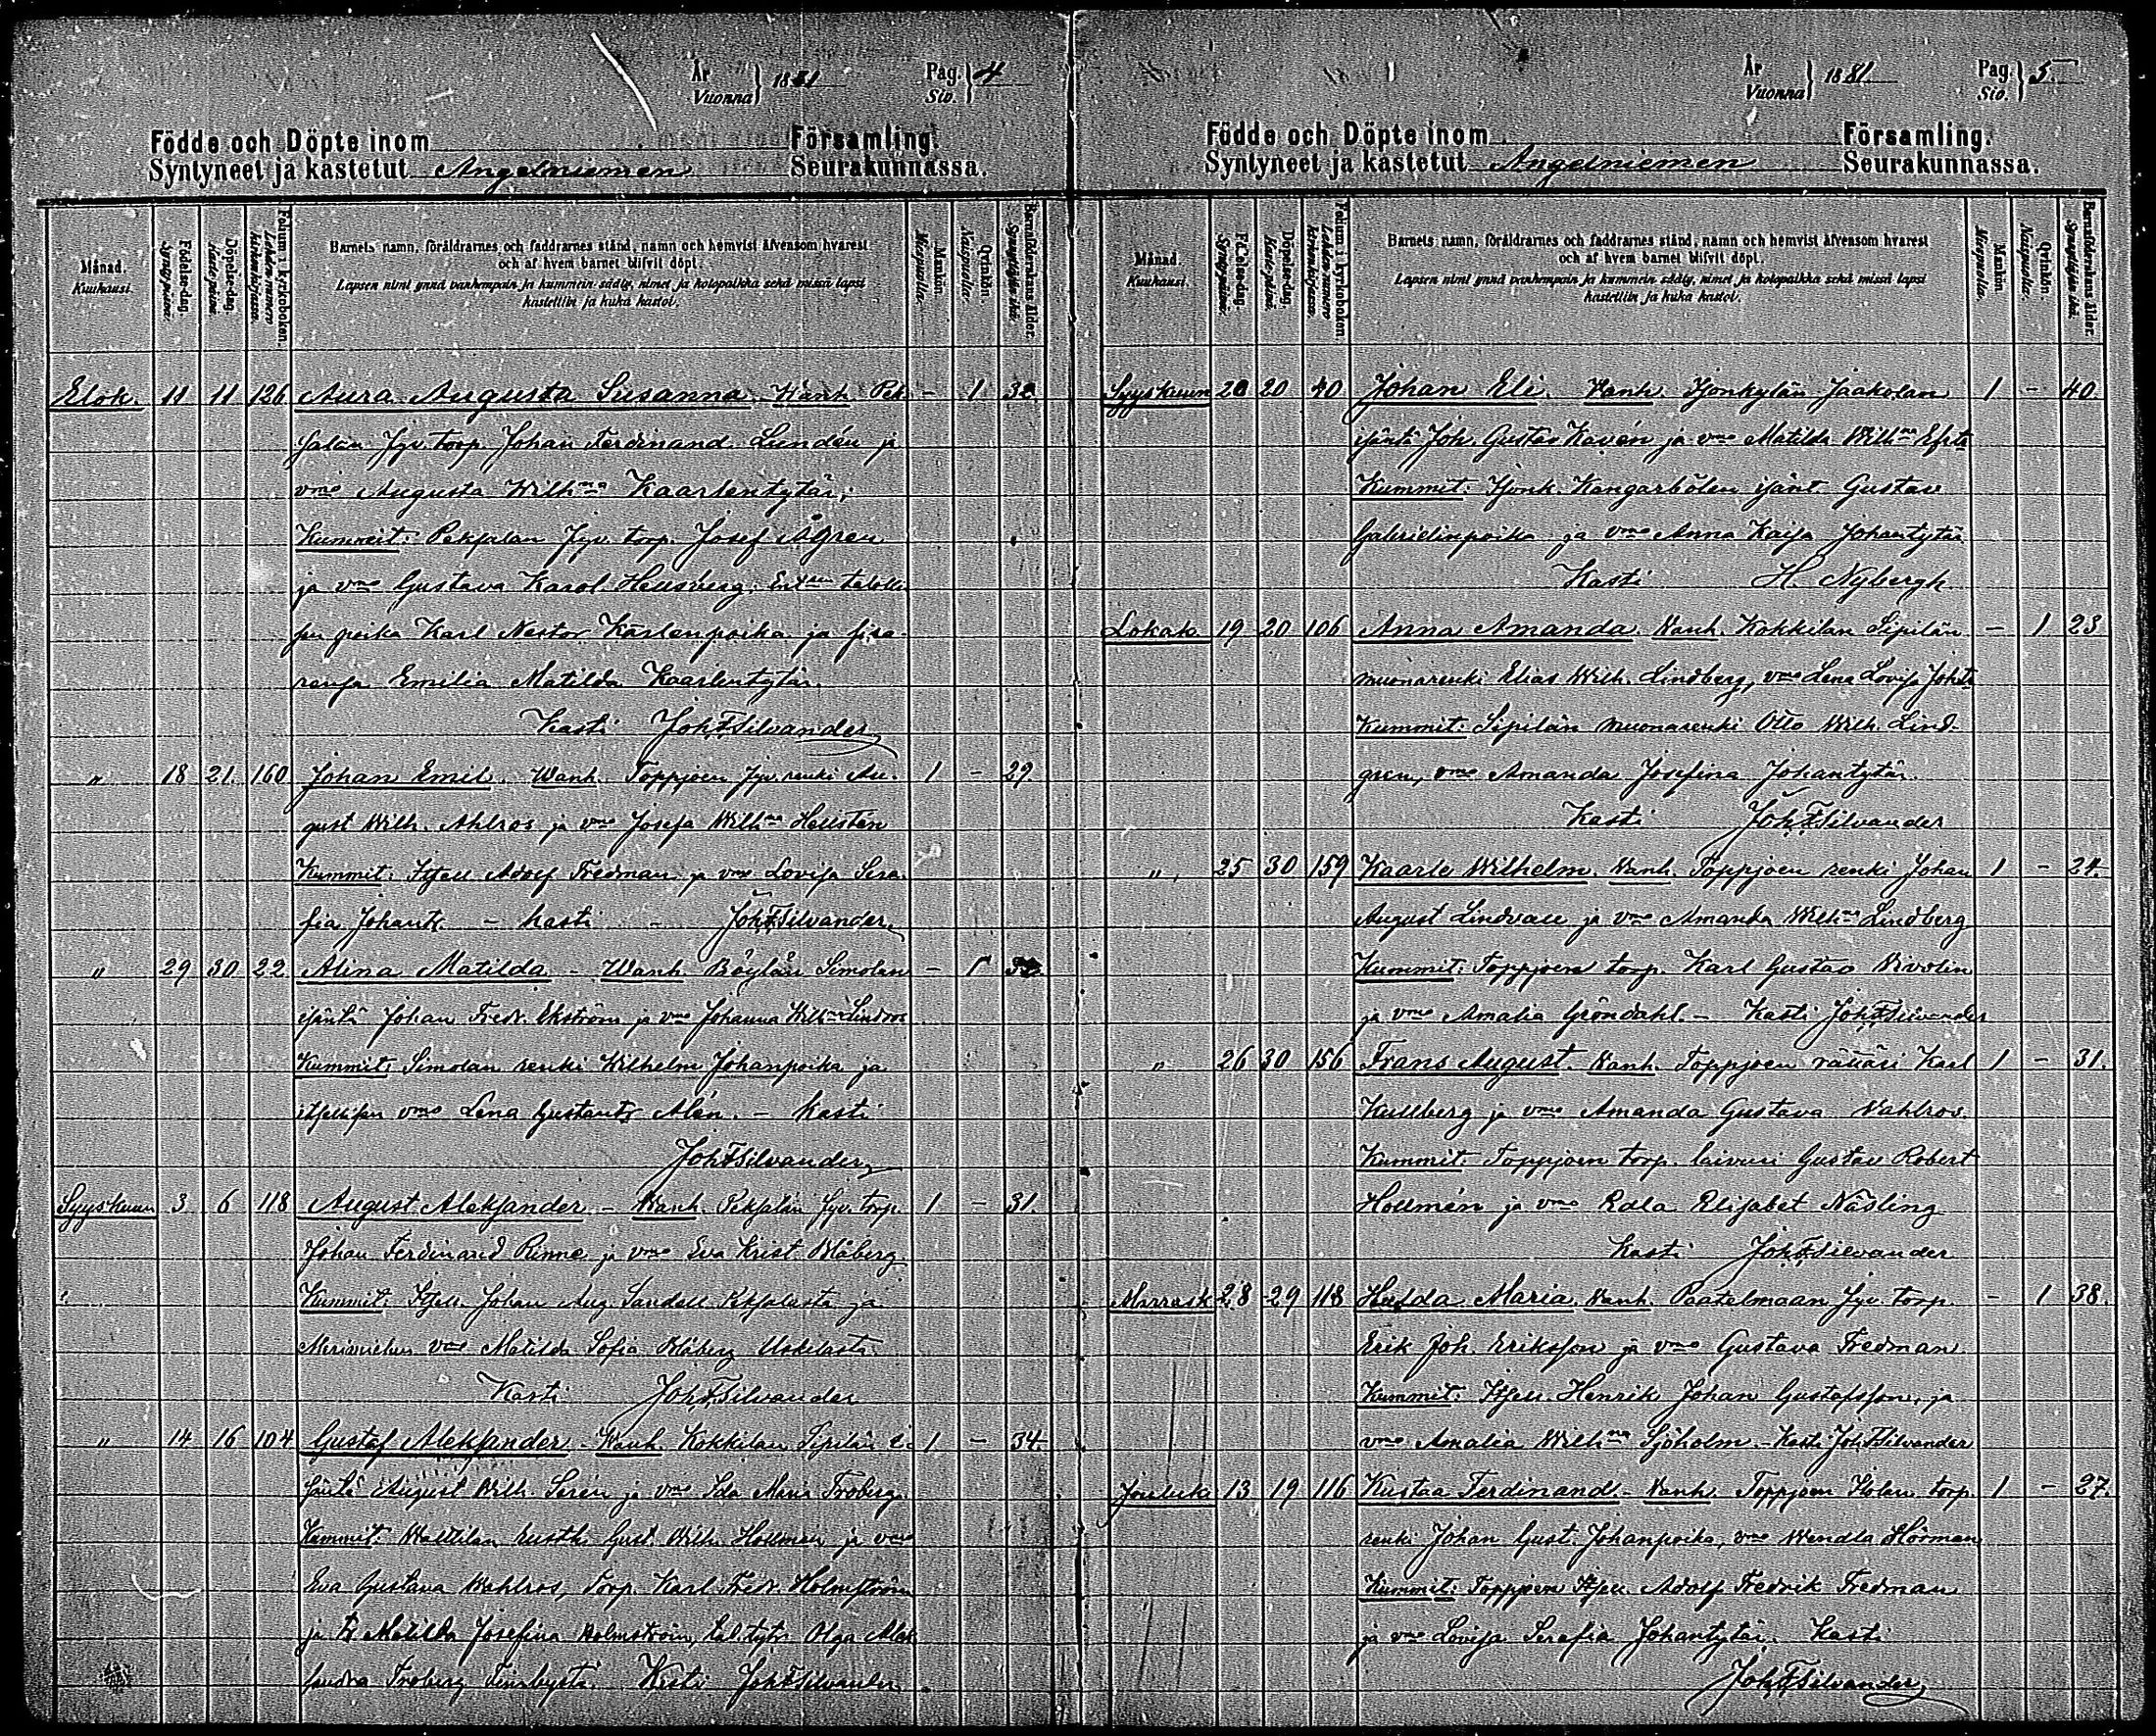 År
Vuonna } 1881 Pag.
Siv. } 4
Födde och Döpte inom Församling.
Syntyneet ja kastetut Angelniemen Seurakunnassa.
Månad.
Kuukausi.
Födelse-dag.
Syntymä-päivä.
Döpelse-dag.
Kaste-päivä.
Folium i kyrkoboken.
Lehden numero kirkonkirjassa.
Barnets namn, föräldrarnes och faddrarnes stånd, namn och hemvist äfvensom hvarest
och af hvem barnet blifvit döpt.
Lapsen nimi ynnä vanhempain ja kummein sääty, nimet ja kotopaikka sekä missä lapsi
kastettiin ja kuka kastoi.
Mankön.
Miespuolia.
Qvinkön.
Naispuolia.
Barnaföderskans ålder.
Synnyttäjän ikä.
Elok. 11 11 126 Aura Augusta Susanna. Wanh. Pek- – 1
salan Jyv. torp. Johan Ferdinand Lundén ja
vmo Augusta Wilhna Kaarlentytär;
Kummit: Peksalan Jyv. torp. Josef Ågren
ja vmo Gustava Karol. Hellsberg;
poika Karl Nestor Kärlenpoika ja
Emilia Matilda Kaarlentytär.
Kasti Joh. F. Silvander
„ 18 21. 160 Johan Emil. Wanh. Toppjoen Jyv. renki Au- 1 – 29
gust Wilh. Ahlros ja vmo Josefa Wilhna Hellstén
Kummit: Itsell. Adolf Fredman ja vmo Lovisa Sera-
fia Johantr. – kasti – Joh. F. Silvander.
„ 29 30 22 Alina Matilda – Wanh. Böylän Simolan – 1
isäntä Johan Fredr. Ekström ja vmo Johanna Wilhna Lindroos
Kummit: Simolan renki Wilhelm Johanpoika ja
itsellisen vmo Lena Gustantr Alén. – kasti
Joh. F. Silvander
Syyskuun 3 6 118 August Aleksander – Wanh. Peksalan Jyv. torp. 1 – 31.
Johan Ferdinand Rinne ja vmo Eva Krist. Blåberg
Kummit: Itsell. Johan Aug. Sandell Peksalasta ja
Merimiehen vmo Matilda Sofia Blåberg Uskelasta.
Kasti Joh. F. Silvander
„ 14 16 104 Gustaf Aleksander – Wanh. Kokkilan Sipilän i- 1 – 34.
säntä August Wilh. Serén ja vmo Ida Maria Froberg.
Kummit: Wallilan rustth. Gust. Wilh. Hollmén ja vmo
Eva Gustava Wahlros, Torp. Karl Fredr. Holmström
ja tr Matilda Josefina Holmström, tal. tytr Olga Alek-
sandra Froberg Finnbystä. Kasti Joh. F. Silvander
År
Vuonna } 1881 Pag.
Siv. } 5
Födde och Döpte inom Församling.
Syntyneet ja kastetut Angelniemen Seurakunnassa.
Månad.
Kuukausi.
Födelse-dag.
Syntymä-päivä.
Döpelse-dag.
Kaste-päivä.
Folium i kyrkoboken.
Lehden numero kirkonkirjassa.
Barnets namn, föräldrarnes och faddrarnes stånd, namn och hemvist äfvensom hvarest
och af hvem barnet blifvit döpt.
Lapsen nimi ynnä vanhempain ja kummein sääty, nimet ja kotopaikka sekä missä lapsi
kastettiin ja kuka kastoi.
Mankön.
Miespuolia.
Qvinkön.
Naispuolia.
Barnaföderskans ålder.
Synnyttäjän ikä.
Syyskuun 20 20 40 Johan Eli. Wanh. Isonkylän Jaakolan 1 – 40
isäntä Joh. Gustav Kavén ja vmo Matilda Wilhna
Kummit: Isonk. Kangarbölen isänt. Gustav
Gabrielinpoika ja vmo Anna Kaisa Johantytär
Kasti H. Nybergh
Lokak. 19 20 106 Anna Amanda. Wanh. Kokkilan Sipilän – 1 23
muonarenki Elias Wilh. Lindberg, vmo Lena Lovisa Johtr
Kummit: Sipilän muonarenki Otto Wilh. Lind-
gren, vmo Amanda Josefina Johantytär.
Kasti Joh. F. Silvander
„ 25 30 159 Kaarle Wilhelm. Wanh. Toppjoen renki Johan 1 – 24.
August Lindvall ja vmo Amanda Wilhna Lindberg
Kummit: Toppjoen torp. Karl Gustav Vivolin
ja vmo Amalia Gröndahl. – Kasti Joh. F. Silvander
„ 26 30 156 Frans August. Wanh. Toppjoen räätäri Karl 1 – 31.
Kullberg ja vmo Amanda Gustava Wahlros.
Kummit: Toppjoen torp. laivuri Gustav Robert
Hollmén ja vmo Edla Elisabet Näsling
Kasti Joh. F. Silvander
Marrask. 28 29 118 Hulda Maria. Wanh. Paatelmaan Jyv. torp. – 1 38.
Erik Joh. Eriksson ja vmo Gustava Fredman
Kummit: Itsell. Henrik Johan Gustafsson, ja
vmo Amalia Wilhna Sjöholm – Kasti Joh. F. Silvander
Jouluk. 13 19 116 Kustaa Ferdinand – Wanh. Toppjoen Isolan torp. 1 – 27.
renki Johan Gust. Johanpoika, vmo Wendla Hörman
Kummit: Toppjoen Itsell. Adolf Fredrik Fredman
ja vmo Lovisa Serafia Johantytär. Kasti
Joh. F. Silvander